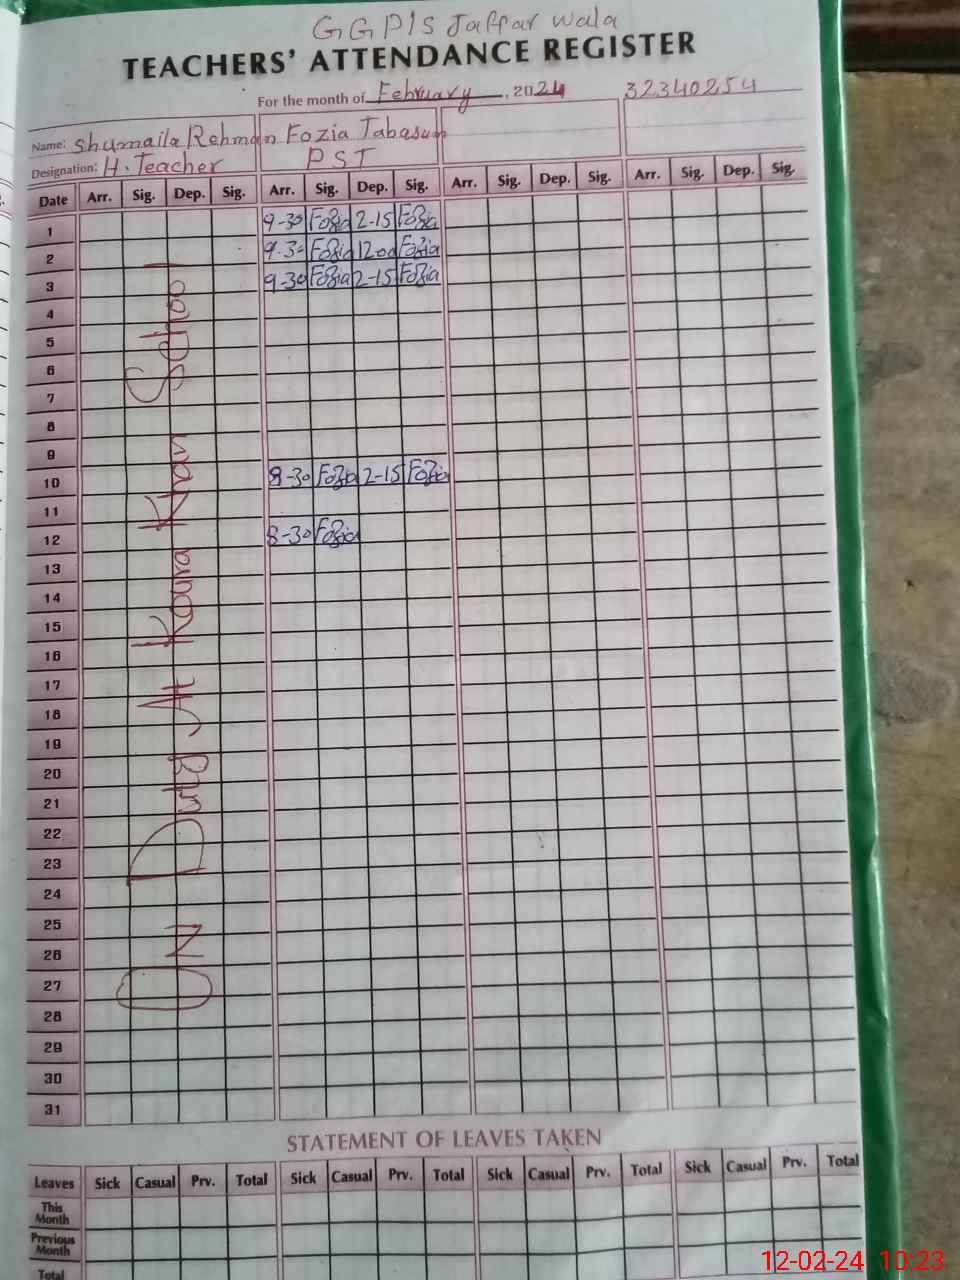 GGPS Jaffar Wala
TEACHERS' ATTENDANCE REGISTER
For the month of February, 2024 32340254
Name: Shumaila Rehman Fozia Tabasum
Designation: H. Teacher PST
Date Arr. Sig. Dep. Sig. Arr. Sig. Dep. Sig. Arr. Sig. Dep. Sig. Arr. Sig. Dep. Sig.
1 9-30 Fozia 2-15 Fozia
2 9-30 Fozia 12-00 Fozia
3 9-30 Fozia 2-15 Fozia
4
5
6
7
8
9
10 8-30 Fozia 2-15 Fozia
11
12 8-30 Fozia
13
14
15
16
17
18
19
20
21
22
23
24
25
26
27
28
29
30
31
ON Duty At Koura Khan School
STATEMENT OF LEAVES TAKEN
Leaves Sick Casual Prv. Total Sick Casual Prv. Total Sick Casual Prv. Total Sick Casual Prv. Total
This Month
Previous Month
Total
12-02-24 10:23